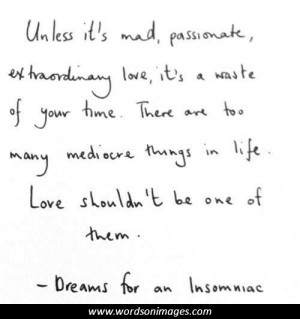 Unless it's mad, passionate,
extraordinary love, it's a waste
of your time. There are too
many mediocre things in life.
Love shouldn't be one of
them.
- Dreams for an Insomniac
www.wordsonimages.com